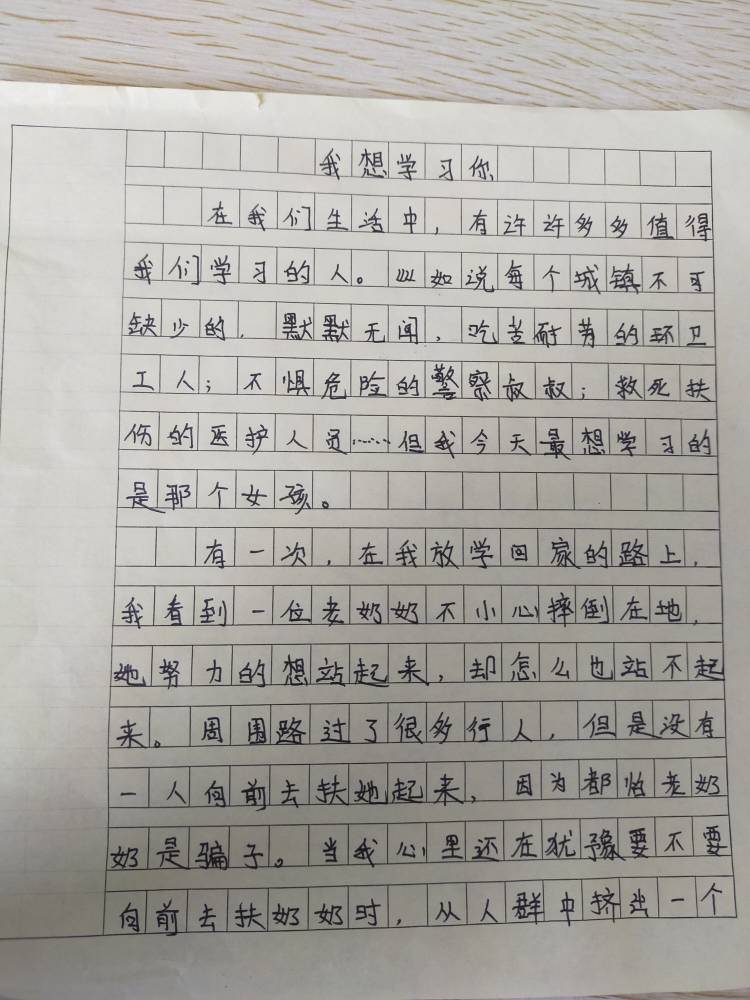 我想学习你
在我们生活中，有许许多多值得
我们学习的人。比如说每个城镇不可
缺少的，默默无闻，吃苦耐劳的环卫
工人；不惧危险的警察叔叔；救死扶
伤的医护人员……但我今天最想学习的
是那个女孩。
有一次，在我放学回家的路上，
我看到一位老奶奶不小心摔倒在地，
她努力的想站起来，却怎么也站不起
来。周围路过了很多行人，但是没有
一人向前去扶她起来，因为都怕老奶
奶是骗子。当我心里还在犹豫要不要
向前去扶奶奶时，从人群中挤出一个